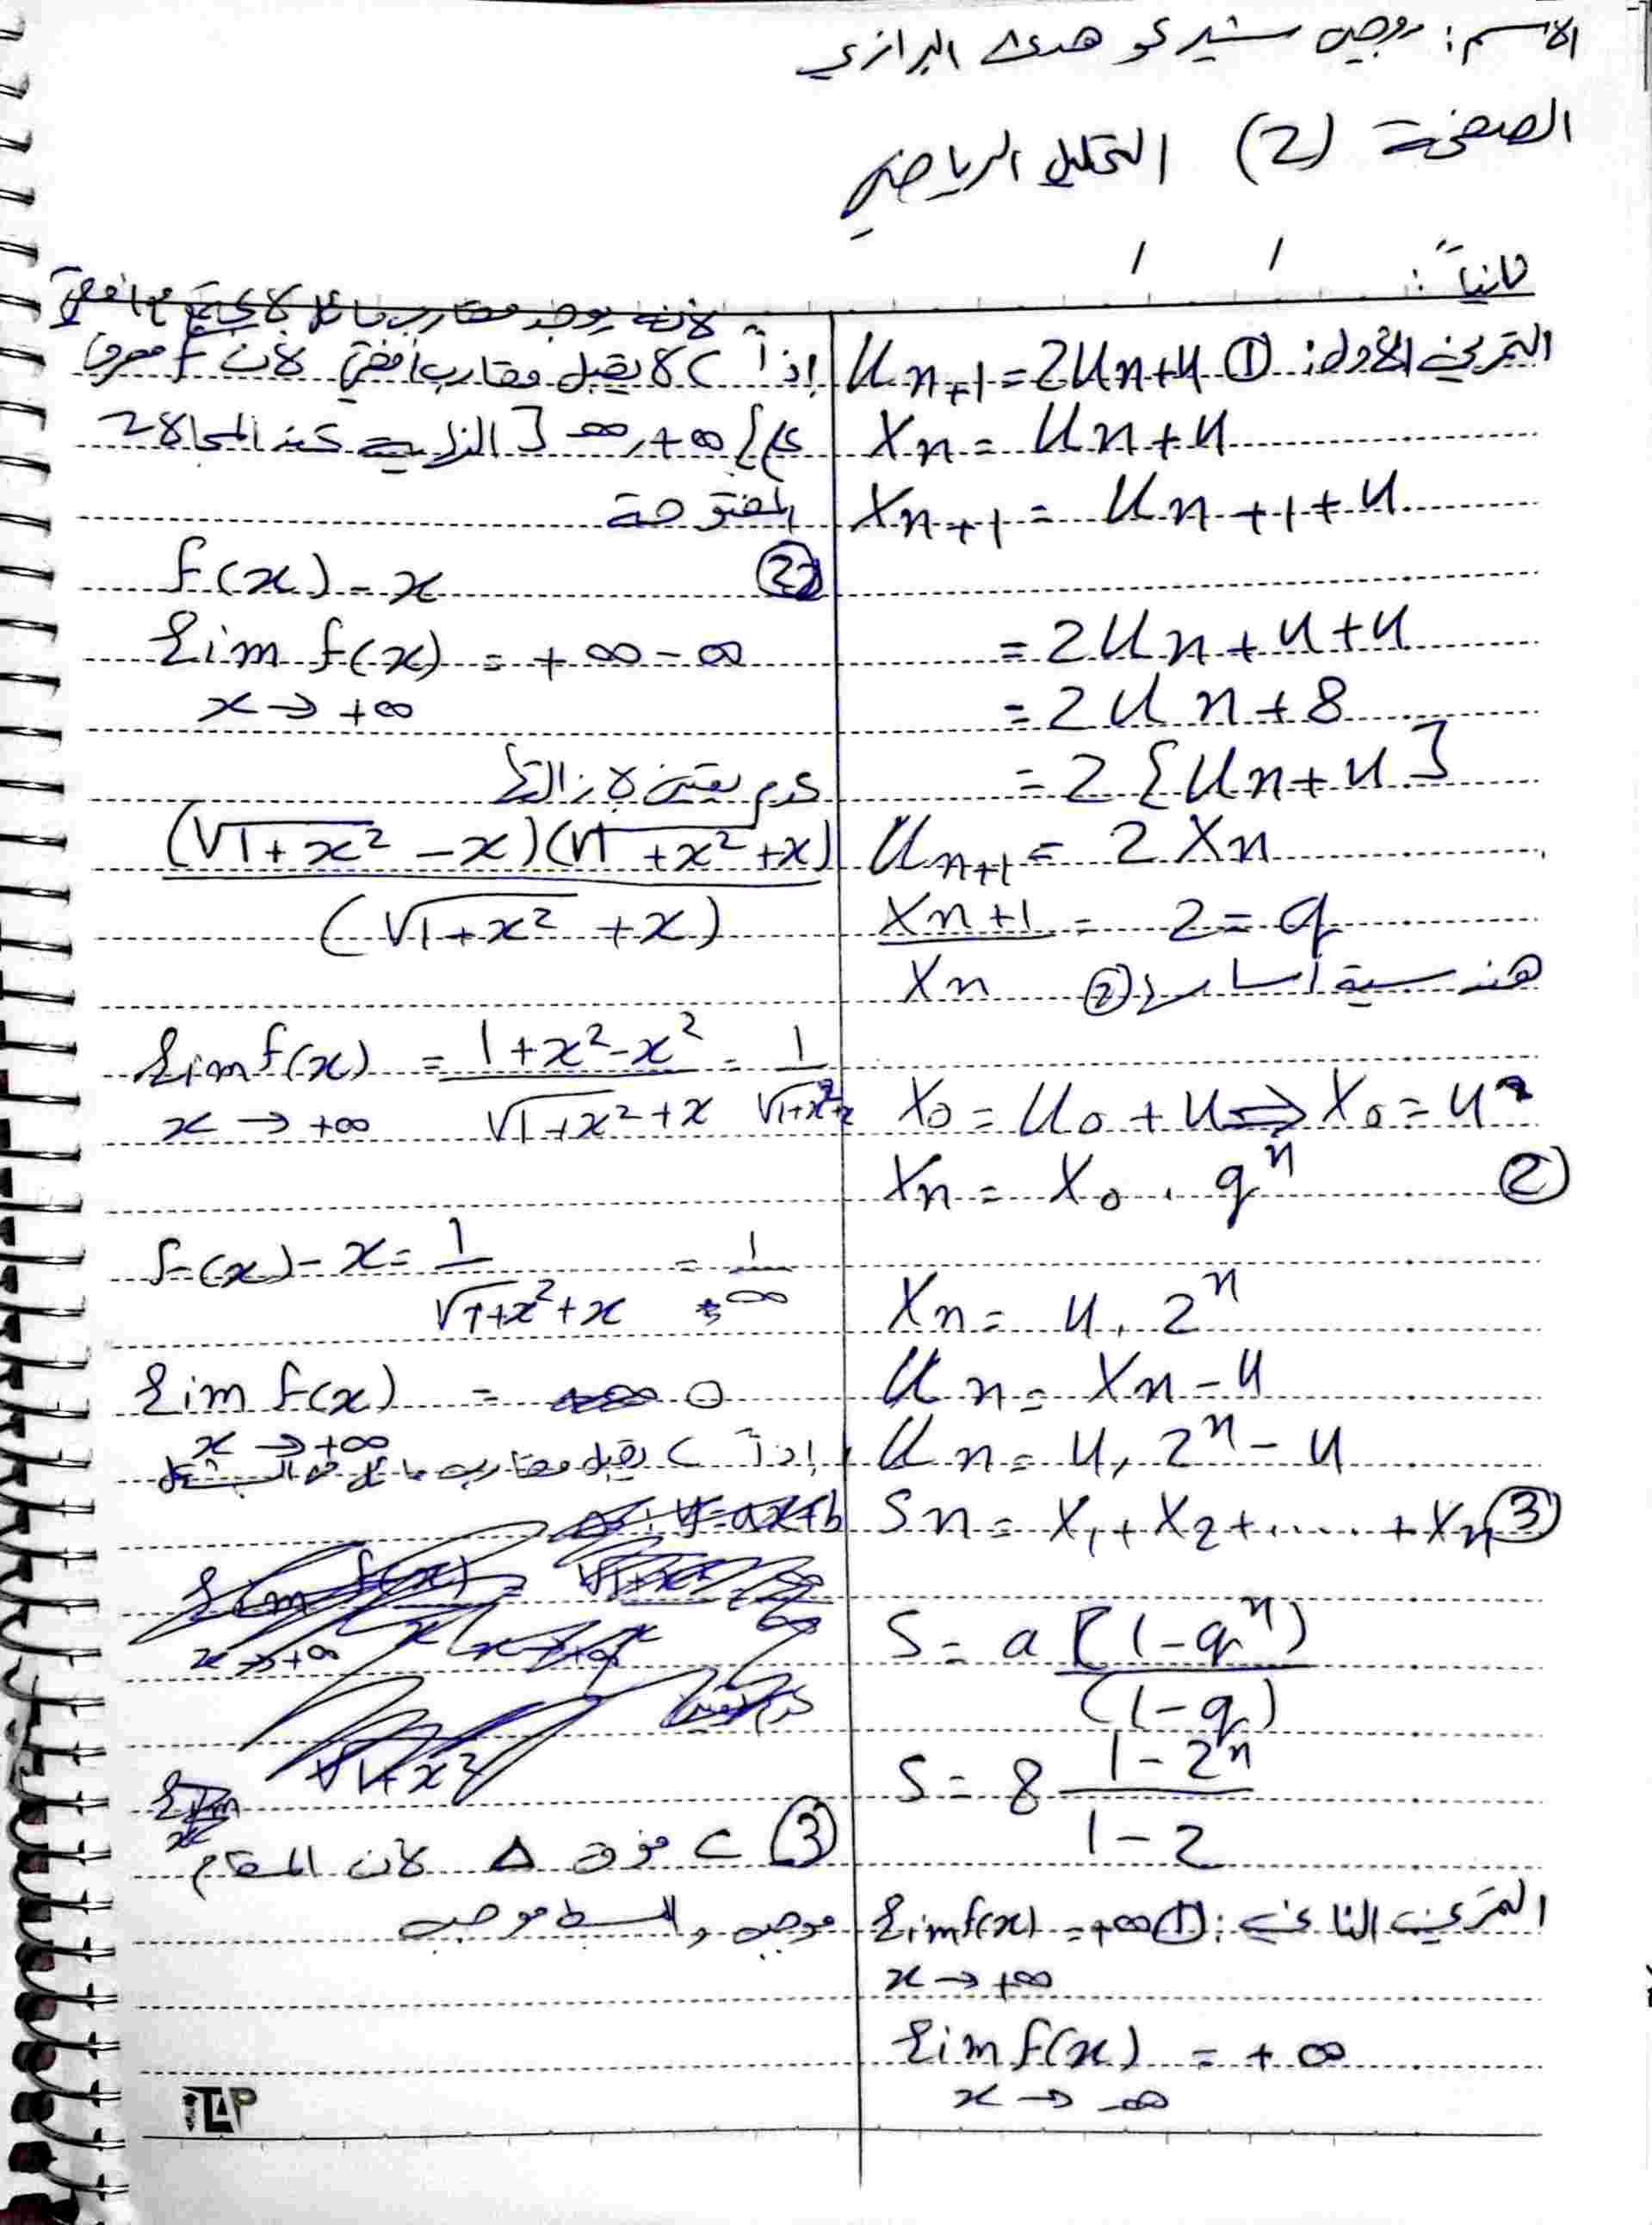 الاسم: روجين شيركو هدى البرازي
الصفحة (2) التحليل الرياضي
ثانياً:
التمرين الأول: ① Un+1 = 2Un + 4
Xn = Un + 4
Xn+1 = Un+1 + 4
= 2Un + 4 + 4
= 2Un + 8
= 2 {Un + 4}
Un+1 = 2Xn
Xn+1 / Xn = 2 = q
هندسية أساسها (2)
X0 = U0 + 4 ⇒ X0 = 4
② Xn = X0 . q^n
Xn = 4 . 2^n
Un = Xn - 4
Un = 4 . 2^n - 4
③ Sn = X1 + X2 + ..... + Xn
S = a [(1 - q^n) / (1 - q)
S = 8 (1 - 2^n) / (1 - 2)
التمرين الثاني: ① lim f(x) = +∞
x → +∞
lim f(x) = +∞
x → -∞
لأنه يوجد مقارب مائل
إذاً C لا يقبل مقارب أفقي لأن f معرف
على ]-∞, +∞[ عند المجالات
المفتوحة
② f(x) - x
lim f(x) = +∞ - ∞
x → +∞
عدم يقين لإزالته
(√1+x² - x)(√1+x² + x)
(√1+x² + x)
lim f(x) = (1+x²-x²) / (√1+x² + x) = 1 / (√1+x² + x)
x → +∞
f(x) - x = 1 / (√1+x² + x) = 1 / +∞
lim f(x) = 0
x → +∞
إذاً C يقبل مقارب مائل من الشكل
Δ: y = ax + b
lim f(x)/x
x → +∞
عدم يقين
√1+x²
lim
x
③ C فوق Δ لأن المقام
موجب والبسط موجب
iTAP